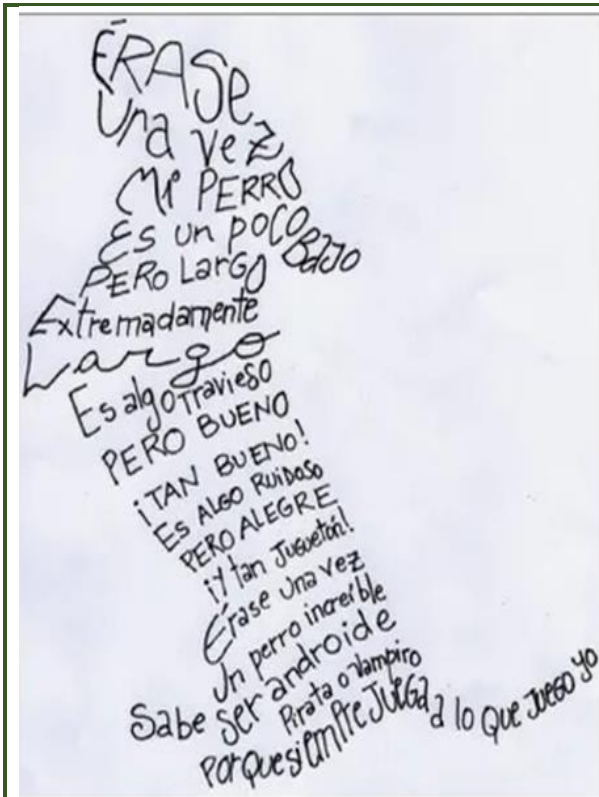 ÉRASE
Una vez
Mi PERRO
Es un poco BAJO
PERO LARGO
Extremadamente
Largo
Es algo travieso
PERO BUENO
¡TAN BUENO!
Es ALGO RUIDOSO
PERO ALEGRE
¡Y tan Juguetón!
Érase una vez
Un perro increíble
Sabe ser androide
Pirata o vampiro
Porque siempre JUEGA a lo que JUEGO yo